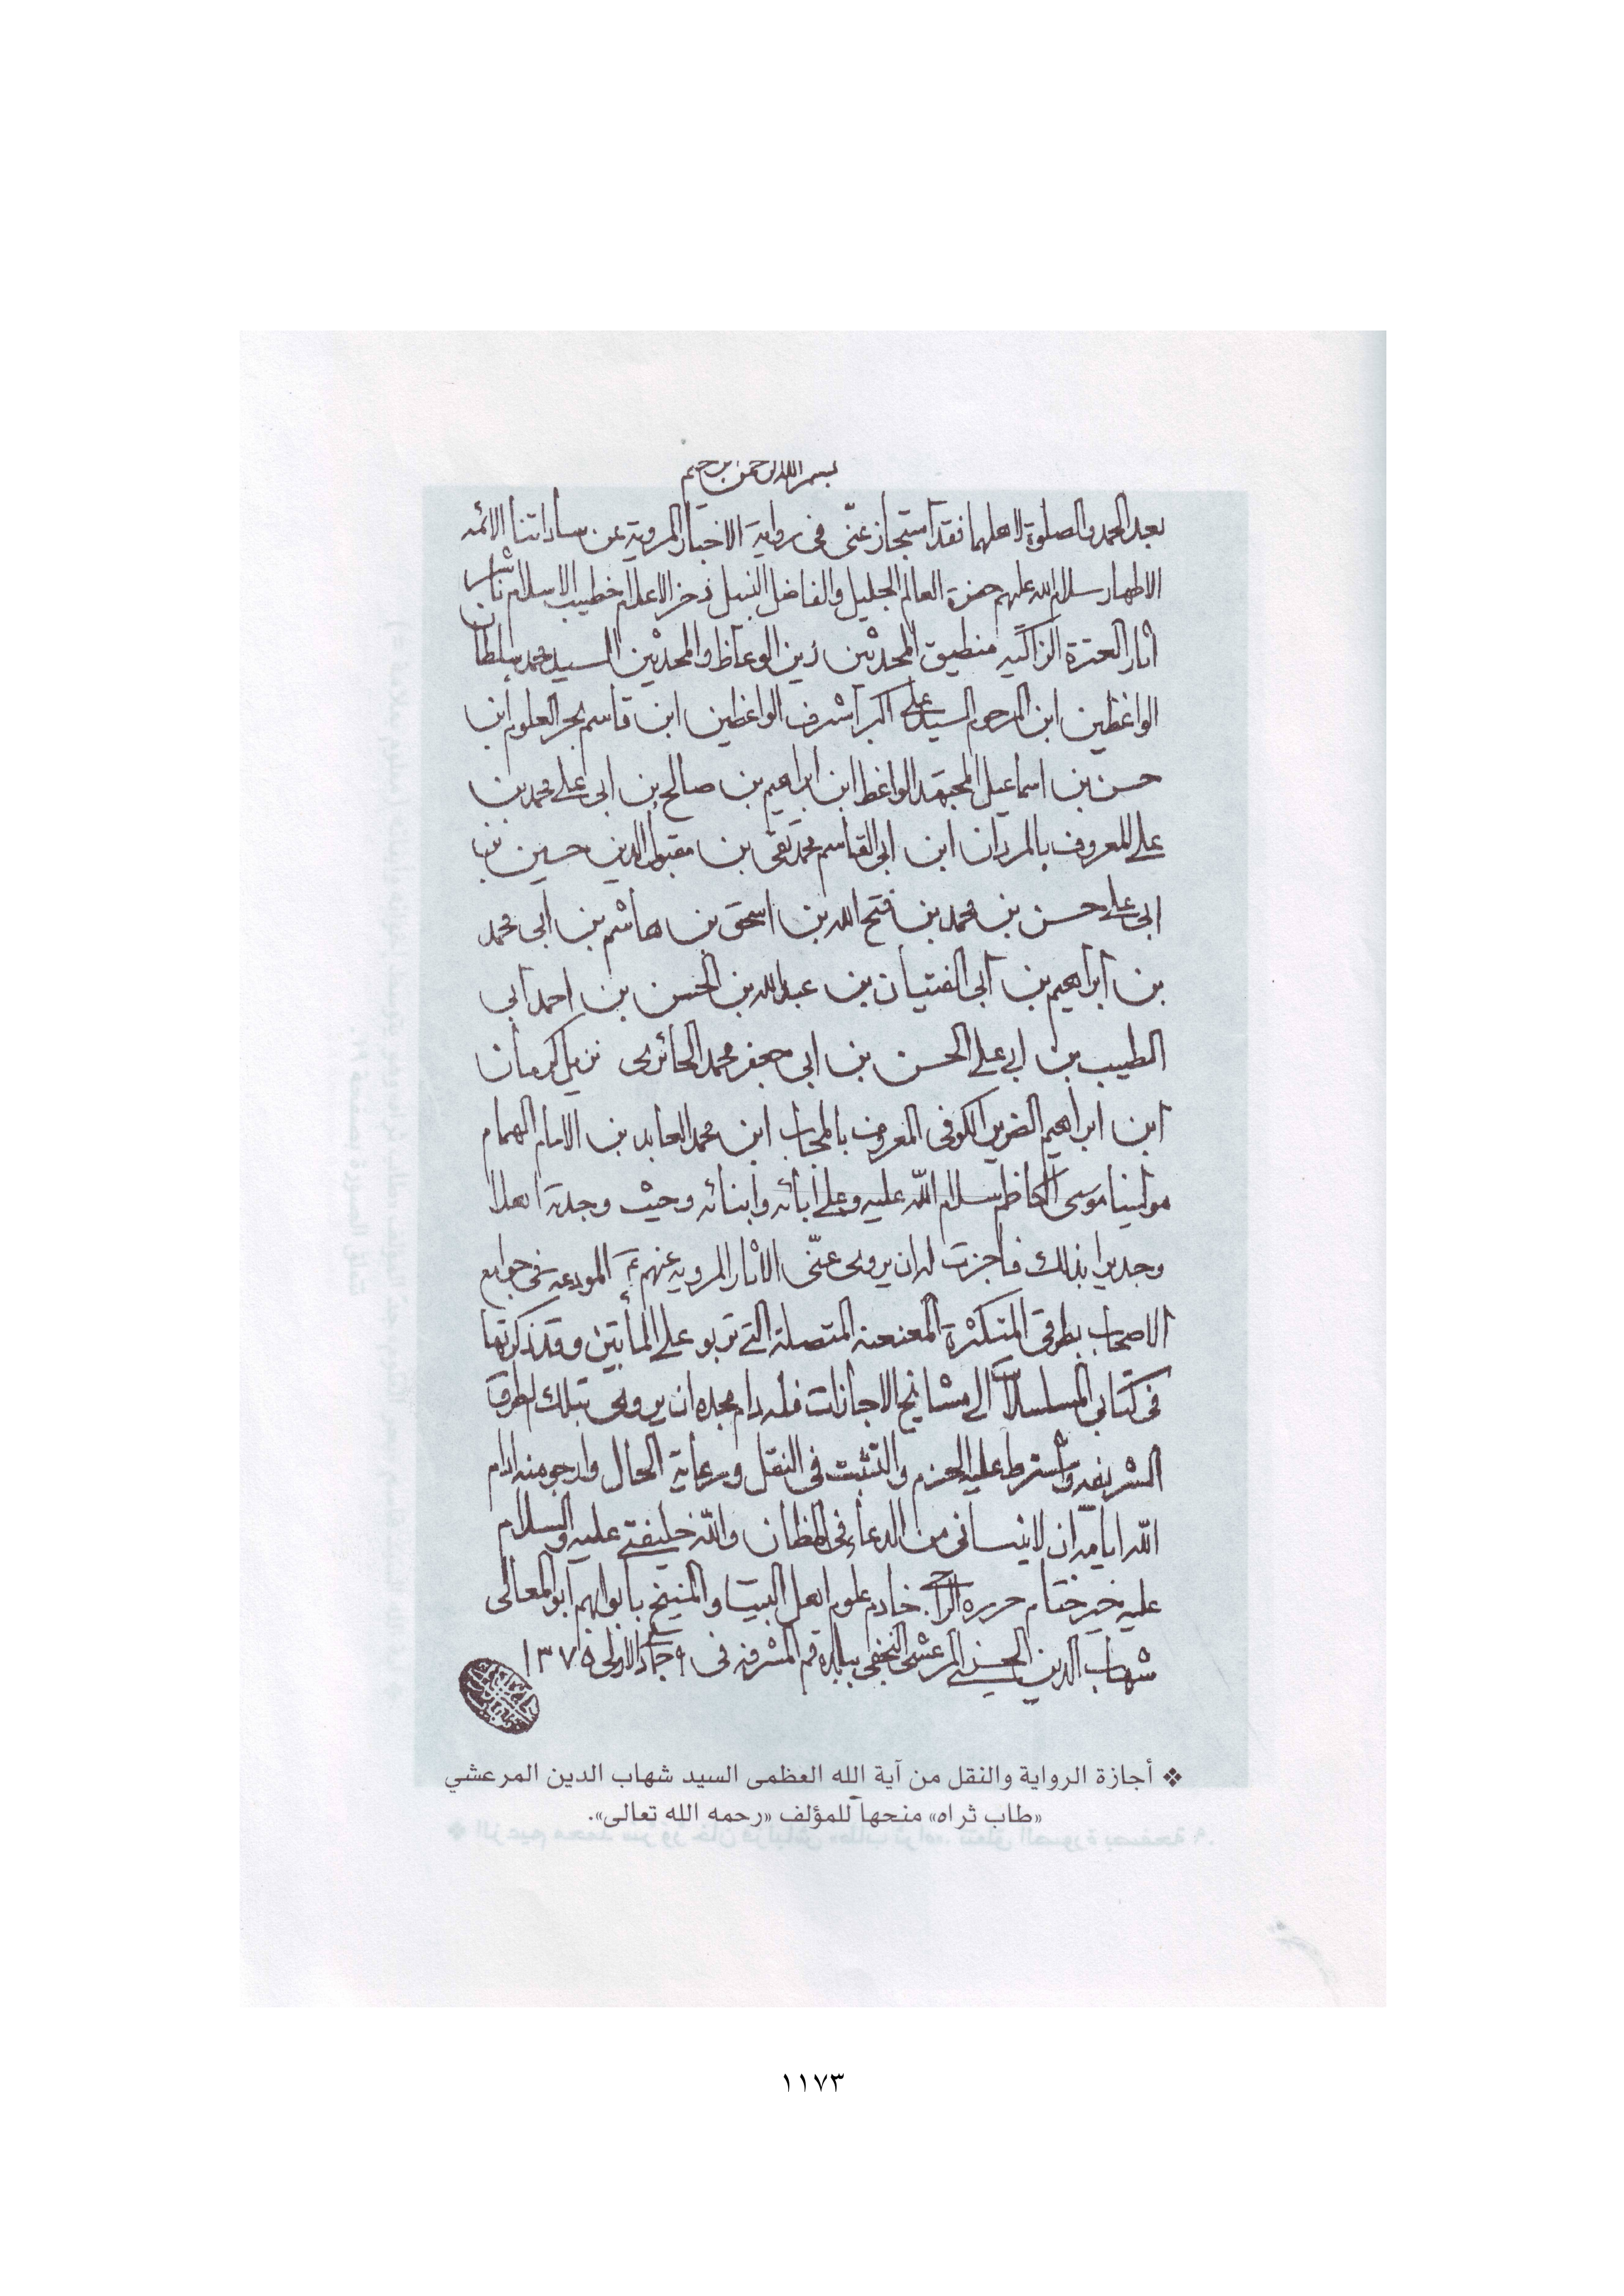 بسم الله الرحمن الرحيم
بعد الحمد والصلوة لاهلهما فقد استجاز عنّى فى رواية الاخبار المروية عن ساداتنا الائمه
الاطهار سلام الله عليهم حضرة العالم الجليل والفاضل النبيل ذخر الاعلام خطيب الاسلام ناشر
اثار العترة الزاكيه منطيق المحدثين زين الوعاظ والمحدثين السيد محمد سلطان
الواعظين ابن المرحوم السيد على اكبر اشرف الواعظين ابن قاسم بحر العلوم ابن
حسن بن اسماعيل المجتهد الواعظ ابن ابراهيم بن صالح بن ابى على محمد بن
على المعروف بالمردان ابن ابى القاسم محمد تقى بن مقبول الدين حسين بن
ابى على حسن بن محمد بن فتح الله بن اسحق بن هاشم بن ابى محمد
بن ابراهيم بن ابى الفتيان بن عبدالله بن الحسن بن احمد ابى
الطيب بن ابى على الحسن بن ابى جعفر محمد الحائرى نزيل كرمان
ابن ابراهيم الضرير الكوفى المعروف بالمجاب ابن محمد العابد بن الامام الهمام
مولينا موسى الكاظم سلام الله عليه وعلى آبائه وابنائه وحيث وجدته اهلا
وجديرا بذلك فاجزت له ان يروى عنّى الاثار المرويه عنهم المودعه فى جوامع
الاصحاب بطرقى المتكثرة المعنعنه المتصلة التى تربو على المأتين وقد ذكرتها
فى كتابى المسلسلات الى مشائخ الاجازات فله دام مجده ان يروى بتلك الطرق
الشريفه واشترط عليه الحزم والتثبت فى النقل ورعاية الحال وارجو منه ادام
الله ايامه ان لا ينسانى من الدعاء فى المظان والله خليفتى عليه والسلام
عليه خير ختام حرره الراجى خادم علوم اهل البيت والمنيخ بابوابهم ابو المعالى
شهاب الدين الحسينى المرعشى النجفى ببلدة قم المشرفه فى ٩ جمادى الاولى ١٣٧٥
❖ أجازة الرواية والنقل من آية الله العظمى السيد شهاب الدين المرعشي
«طاب ثراه» منحها للمؤلف «رحمه الله تعالى».
١١٧٣